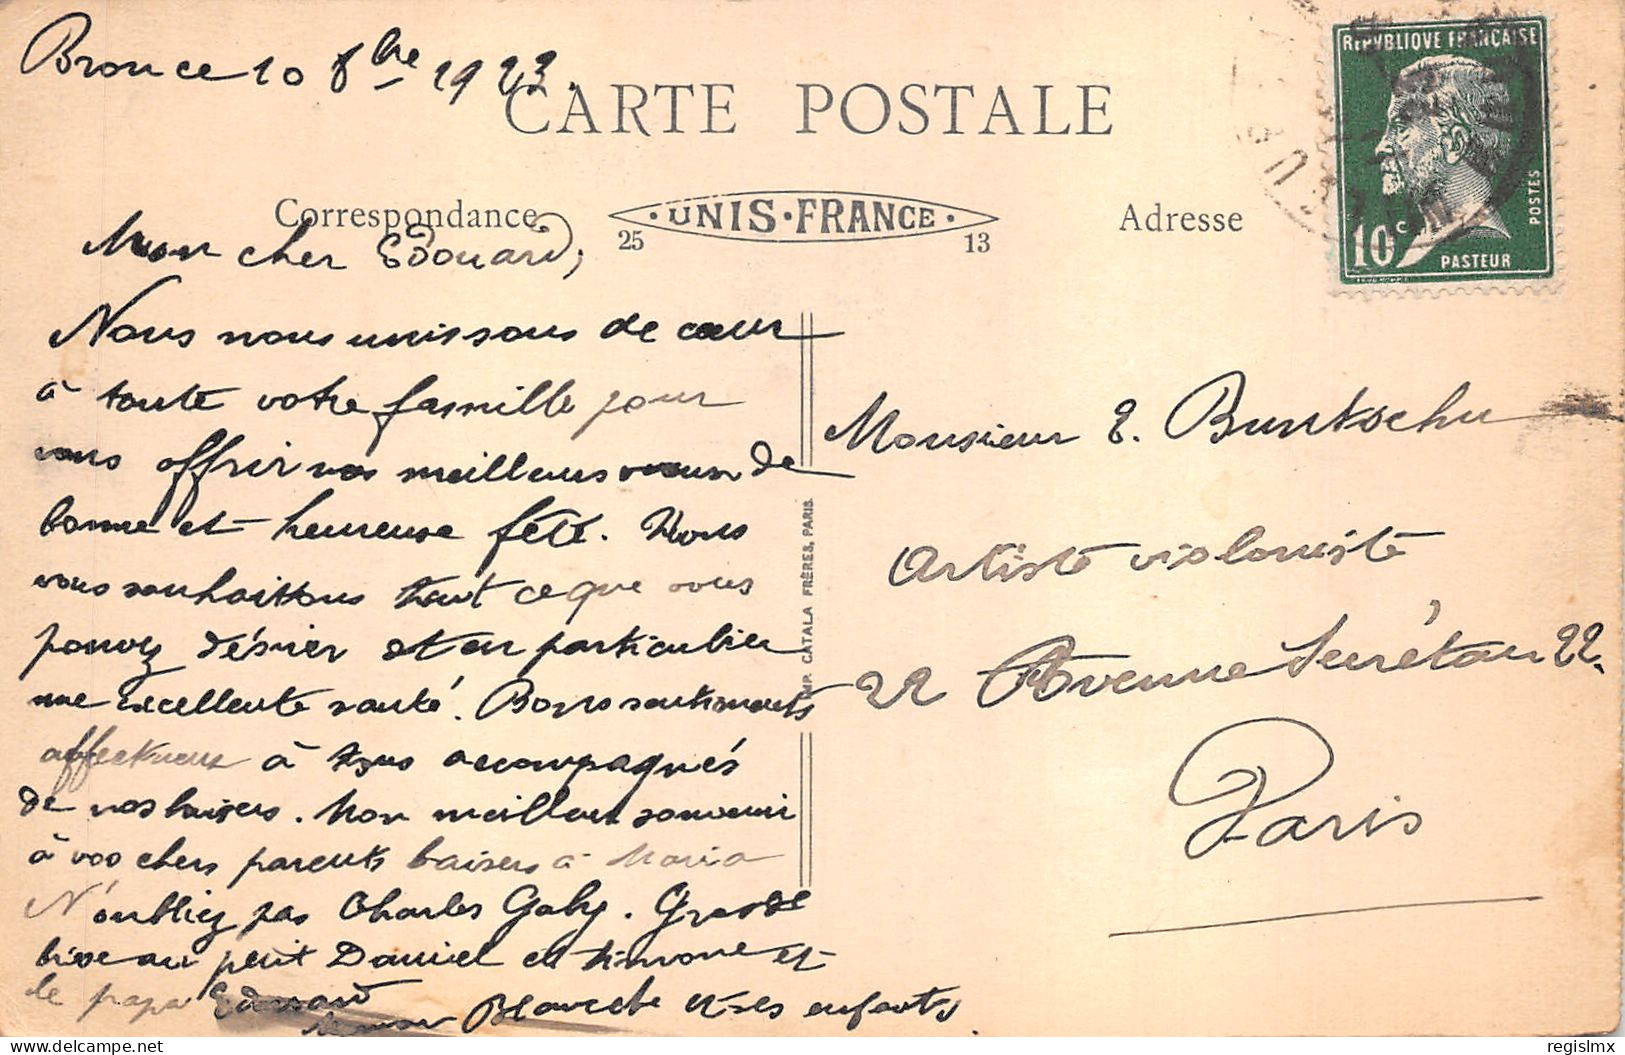 Bronce 10 8bre 1923.
CARTE POSTALE
Correspondance
UNIS-FRANCE
25 13
Adresse
REPVBLIQVE FRANÇAISE
POSTES
10 c
PASTEUR
Mon cher Edouard,
Nous nous unissons de cœur
à toute votre famille pour
vous offrir nos meilleurs vœux de
bonne et heureuse fête. Nous
vous souhaitons tout ce que vous
pouvez désirer et en particulier
une excellente santé. Bons sentiments
affectueux à tous accompagnés
de nos baisers. Mon meilleur souvenir
à vos chers parents baisers à Maria
N'oubliez pas Charles Gaby. Grosse
bise au petit Daniel et Simone et
le papa Edouard
Blanche et ses enfants.
IMP. CATALA FRÈRES, PARIS.
Monsieur E. Buntschu
Artiste violoniste
22 Avenue Secrétan 22.
Paris
regislmx
delcampe.net